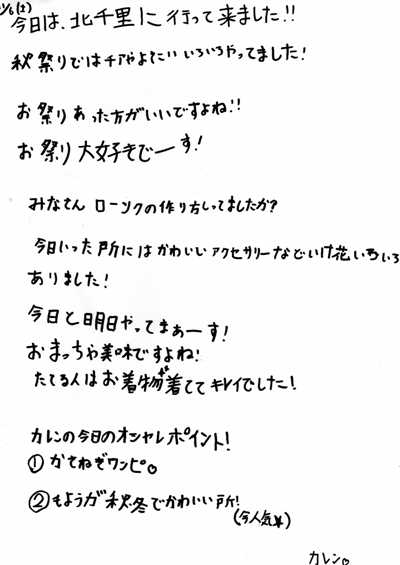 今日は、北千里に行って来ました!!
秋祭りではチアやよさこい いろいろやってました!
お祭りあった方がいいですよね!!
お祭り大好きでーす!
みなさん ローソクの作り方しってましたか?
今日いった所にはかわいいアクセサリーなどいけ花いろいろ
ありました!
今日と明日やってまぁーす!
おまっちゃ美味ですよね!
たてる人はお着物着ててキレイでした!
カレンの今日のオシャレポイント!
①かさねぎワンピ。
②もようが秋冬でかわいい所!
(今人気¥)
カレン。